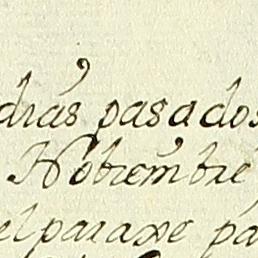 dias pasados
Nobiembre
el paraxe pa